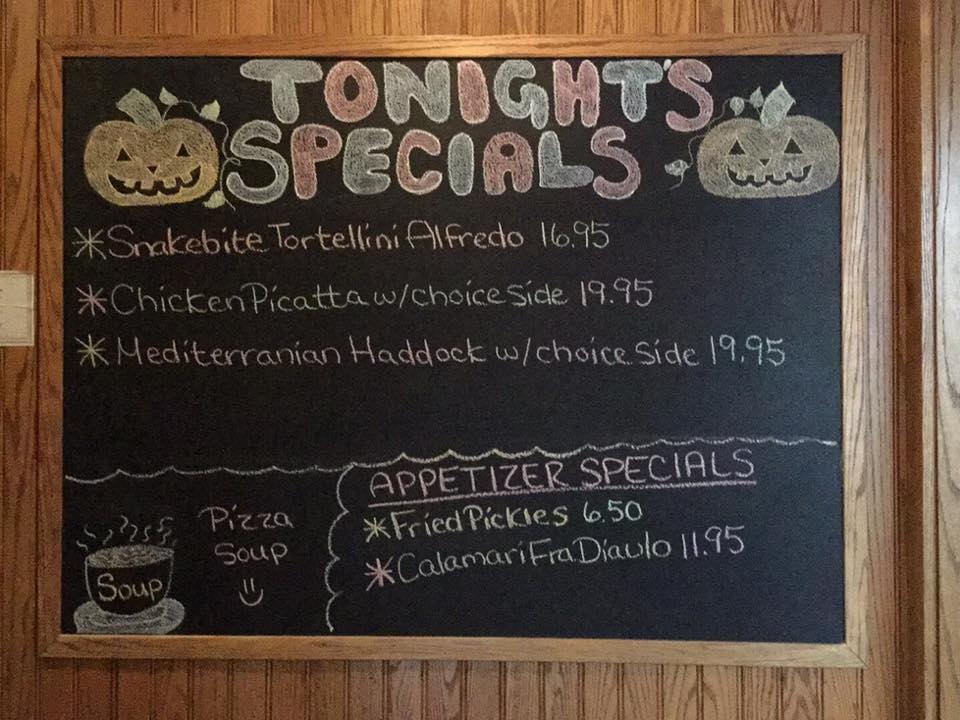 TONIGHT'S
SPECIALS
* Snakebite Tortellini Alfredo 16.95
* Chicken Picatta w/choice side 19.95
* Mediterranian Haddock w/choice side 19.95
APPETIZER SPECIALS
* Fried Pickles 6.50
* Calamari Fra Diavlo 11.95
Pizza
Soup
Soup